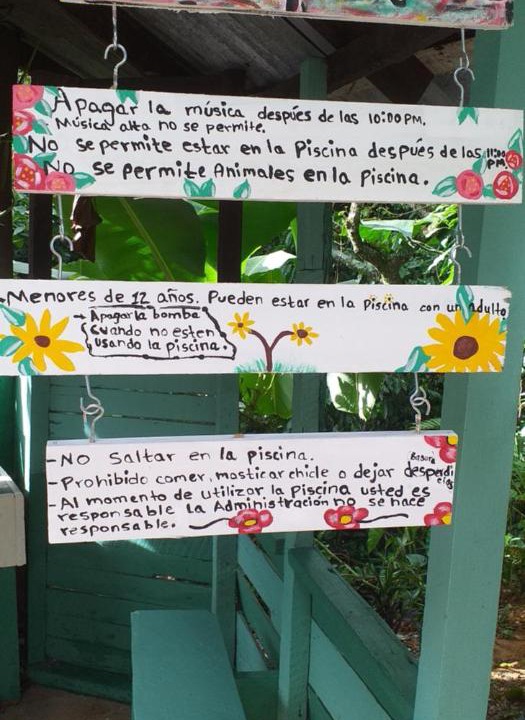 Apagar la música despúes de las 10:00 PM.
Música alta no se permite.
No se permite estar en la Piscina despúes de las 11:00 PM.
No se permite Animales en la Piscina.
Menores de 12 años. Pueden estar en la Piscina con un adulto
→ Apagar la bomba
cuando no esten
usando la piscina.
-No Saltar en la piscina.
-Prohibido comer, masticar chicle o dejar Basura desperdicios
-Al momento de utilizar la Piscina usted es
responsable La Administración no se hace
responsable.